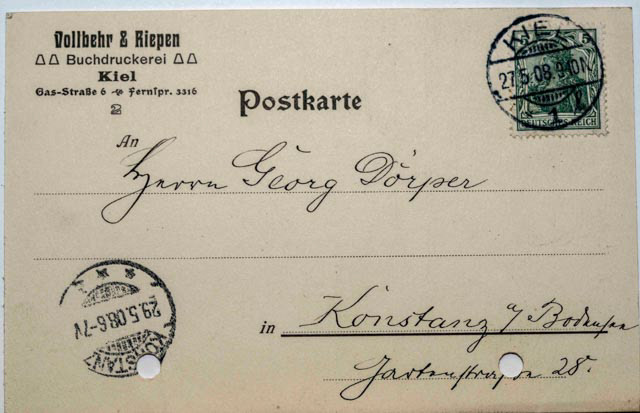 Vollbehr & Riepen
Buchdruckerei
Kiel
Gas-Straße 6 Fernspr. 3316
2
Postkarte
KIEL
27.5.08.9-10N.
1
5
DEUTSCHES REICH
An
Herrn Georg Dörper
29.5.08.6-7V
KONSTANZ
in Konstanz a/ Bodensee
Gartenstrasse 28.